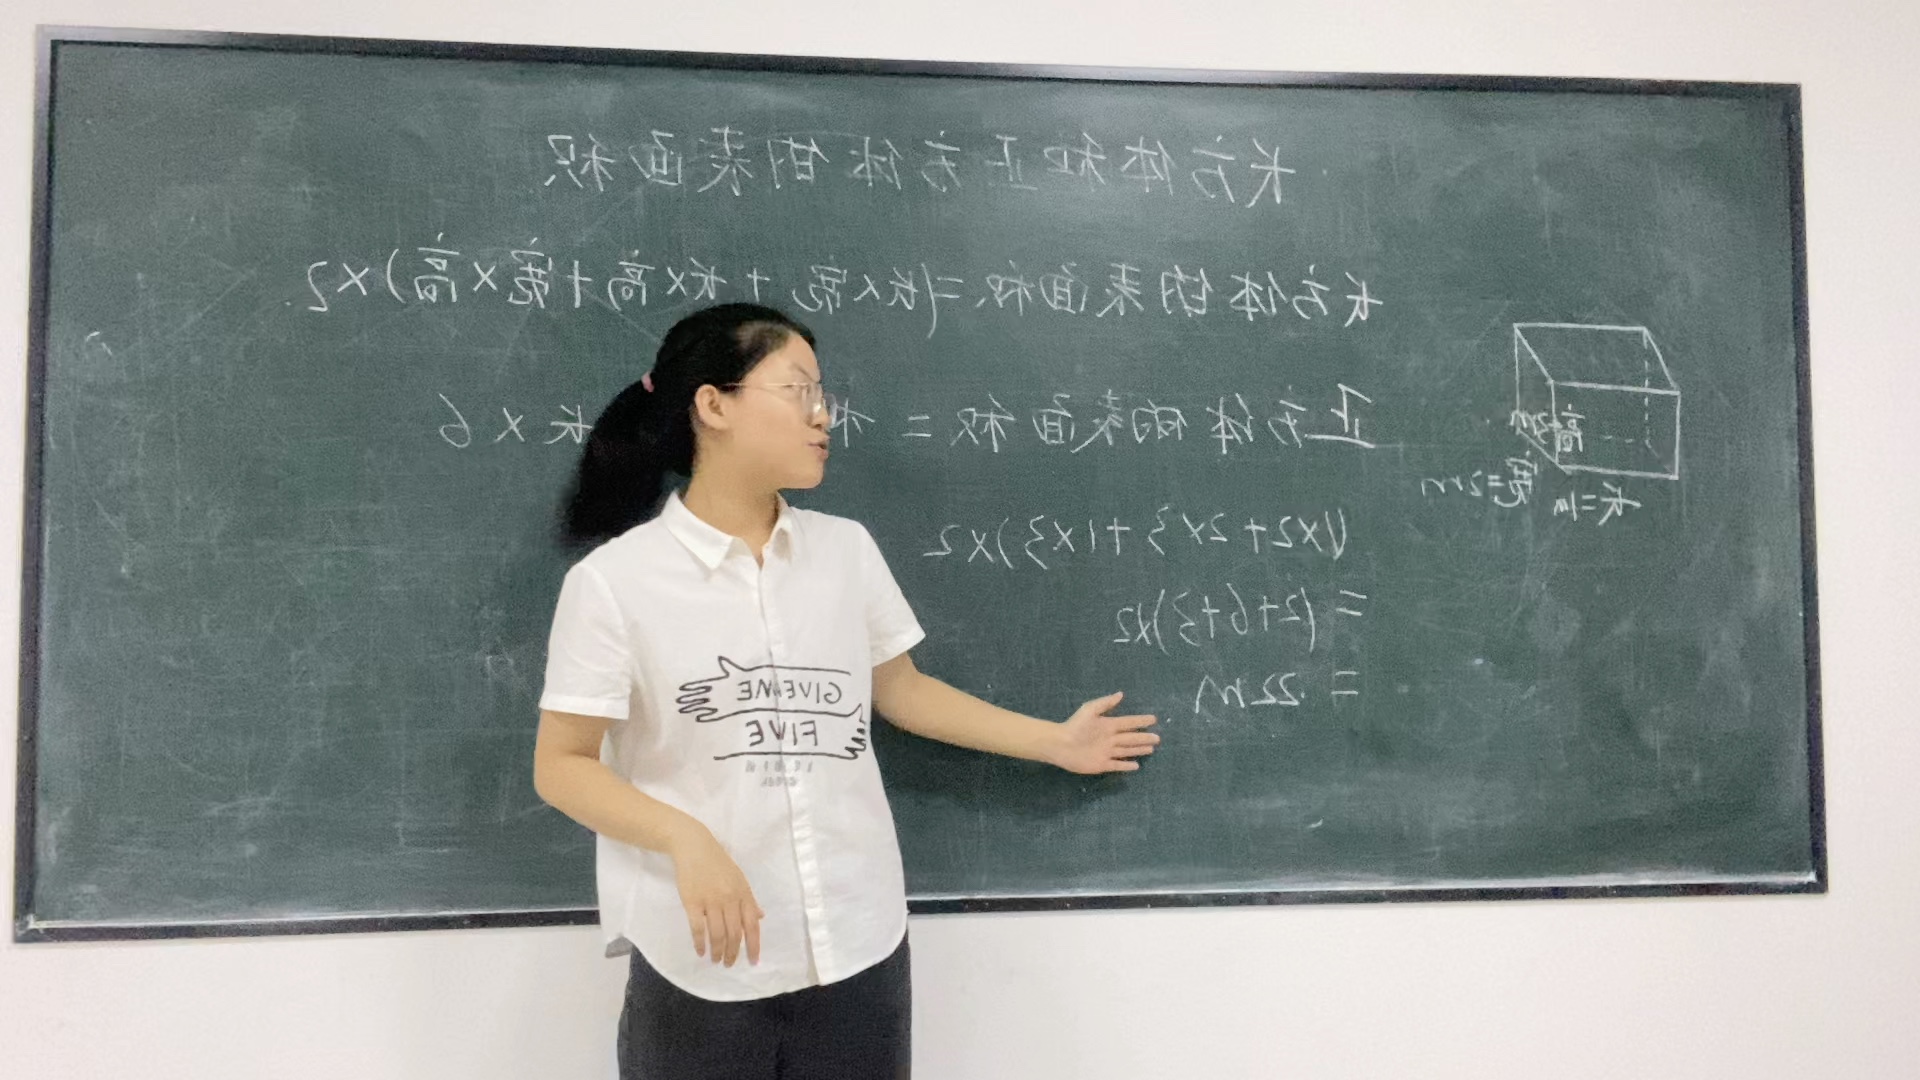 长方体和正方体的表面积
长方体的表面积=(长×宽+长×高+宽×高)×2
正方体的表面积=棱 长×6
(1×2+2×3+1×3)×2
=(2+6+3)×2
=22m
高=3m
宽=2m
长=1m
GIVE ME
FIVE